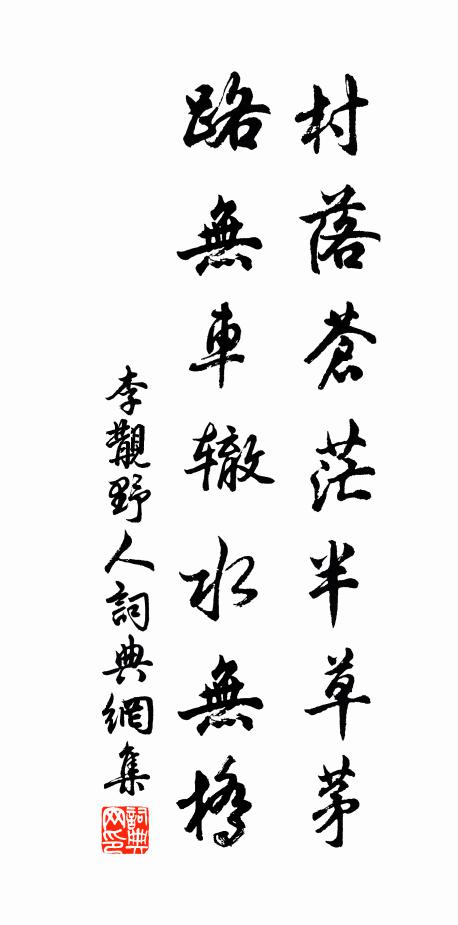 村落蒼茫半草茅
路無車轍水無橋
李觀野人詞典網集
詞典網印